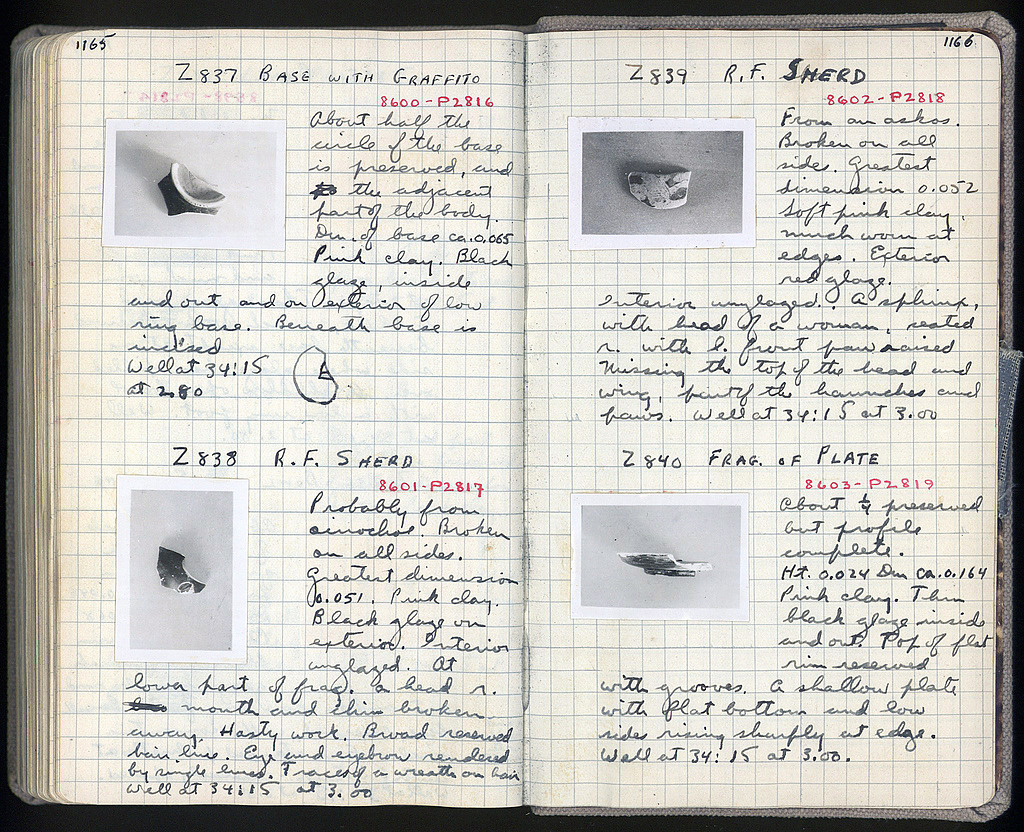 1165
Z 837 BASE WITH GRAFFITO
8600-P2816
About half the
circle of the base
is preserved, and
the adjacent
part of the body.
Dm. of base ca. 0.065
Pink clay. Black
glaze, inside
and out and on exterior of low
ring base. Beneath base is
incised
Well at 34:15
at 2.80
Z 838 R.F. SHERD
8601-P2817
Probably from
oinochoe. Broken
on all sides.
Greatest dimension
0.051. Pink clay.
Black glaze on
exterior. Interior
unglazed. At
lower part of frag. a head r.
mouth and chin broken
away. Hasty work. Broad reserved
hair line. Eye and eyebrow rendered
by single lines. Traces of a wreath on hair
Well at 34:15 at 3.00
1166
Z 839 R.F. SHERD
8602-P2818
From an askos.
Broken on all
sides. Greatest
dimension 0.052
Soft pink clay,
much worn at
edges. Exterior
red glaze.
Interior unglazed. A sphinx,
with head of a woman, seated
r. with l. front paw raised
Missing the top of the head and
wing, part of the haunches and
paws. Well at 34:15 at 3.00
Z 840 FRAG. OF PLATE
8603-P2819
About ¼ preserved
but profile
complete.
Ht. 0.024 Dm ca. 0.164
Pink clay. Thin
black glaze inside
and out. Top of flat
rim reserved
with grooves. A shallow plate
with flat bottom and low
sides rising sharply at edge.
Well at 34:15 at 3.00.